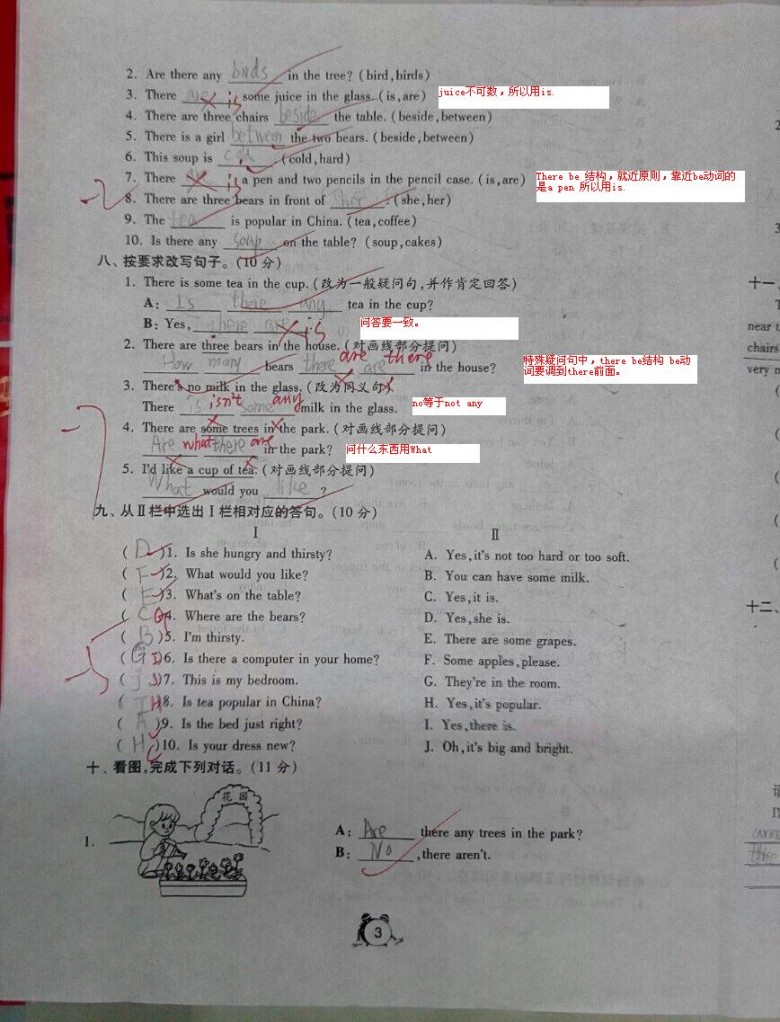 2. Are there any birds in the tree? (bird,birds)
3. There are is some juice in the glass. (is,are) juice不可数，所以用is.
4. There are three chairs beside the table. (beside,between)
5. There is a girl between the two bears. (beside,between)
6. This soup is cold . (cold,hard)
7. There is a pen and two pencils in the pencil case. (is,are) There be 结构，就近原则，靠近be动词的
是a pen 所以用is.
-2 8. There are three bears in front of her . (she,her)
9. The tea is popular in China. (tea,coffee)
10. Is there any soup on the table? (soup,cakes)
八、按要求改写句子。(10 分)
1. There is some tea in the cup. (改为一般疑问句,并作肯定回答)
A: Is there any tea in the cup?
B: Yes, there are is . 问答要一致。
2. There are three bears in the house. (对画线部分提问)
How many bears there are are there in the house? 特殊疑问句中，there be结构 be动
词要调到there前面。
3. There's no milk in the glass. (改为同义句)
There is isn't some any milk in the glass. no等于not any
4. There are some trees in the park. (对画线部分提问)
Are what there are in the park? 问什么东西用What
5. I'd like a cup of tea. (对画线部分提问)
What would you like ?
九、从Ⅱ栏中选出Ⅰ栏相对应的答句。(10 分)
Ⅰ Ⅱ
( D )1. Is she hungry and thirsty? A. Yes,it's not too hard or too soft.
( F )2. What would you like? B. You can have some milk.
( E )3. What's on the table? C. Yes,it is.
( C G )4. Where are the bears? D. Yes,she is.
( B )5. I'm thirsty. E. There are some grapes.
( G I )6. Is there a computer in your home? F. Some apples,please.
( J )7. This is my bedroom. G. They're in the room.
( I H )8. Is tea popular in China? H. Yes,it's popular.
( A )9. Is the bed just right? I. Yes,there is.
( H C )10. Is your dress new? J. Oh,it's big and bright.
十、看图,完成下列对话。(11 分)
花园
1. A: Are there any trees in the park?
B: No ,there aren't.
3
十一、
near t
chairs
very n
十二、